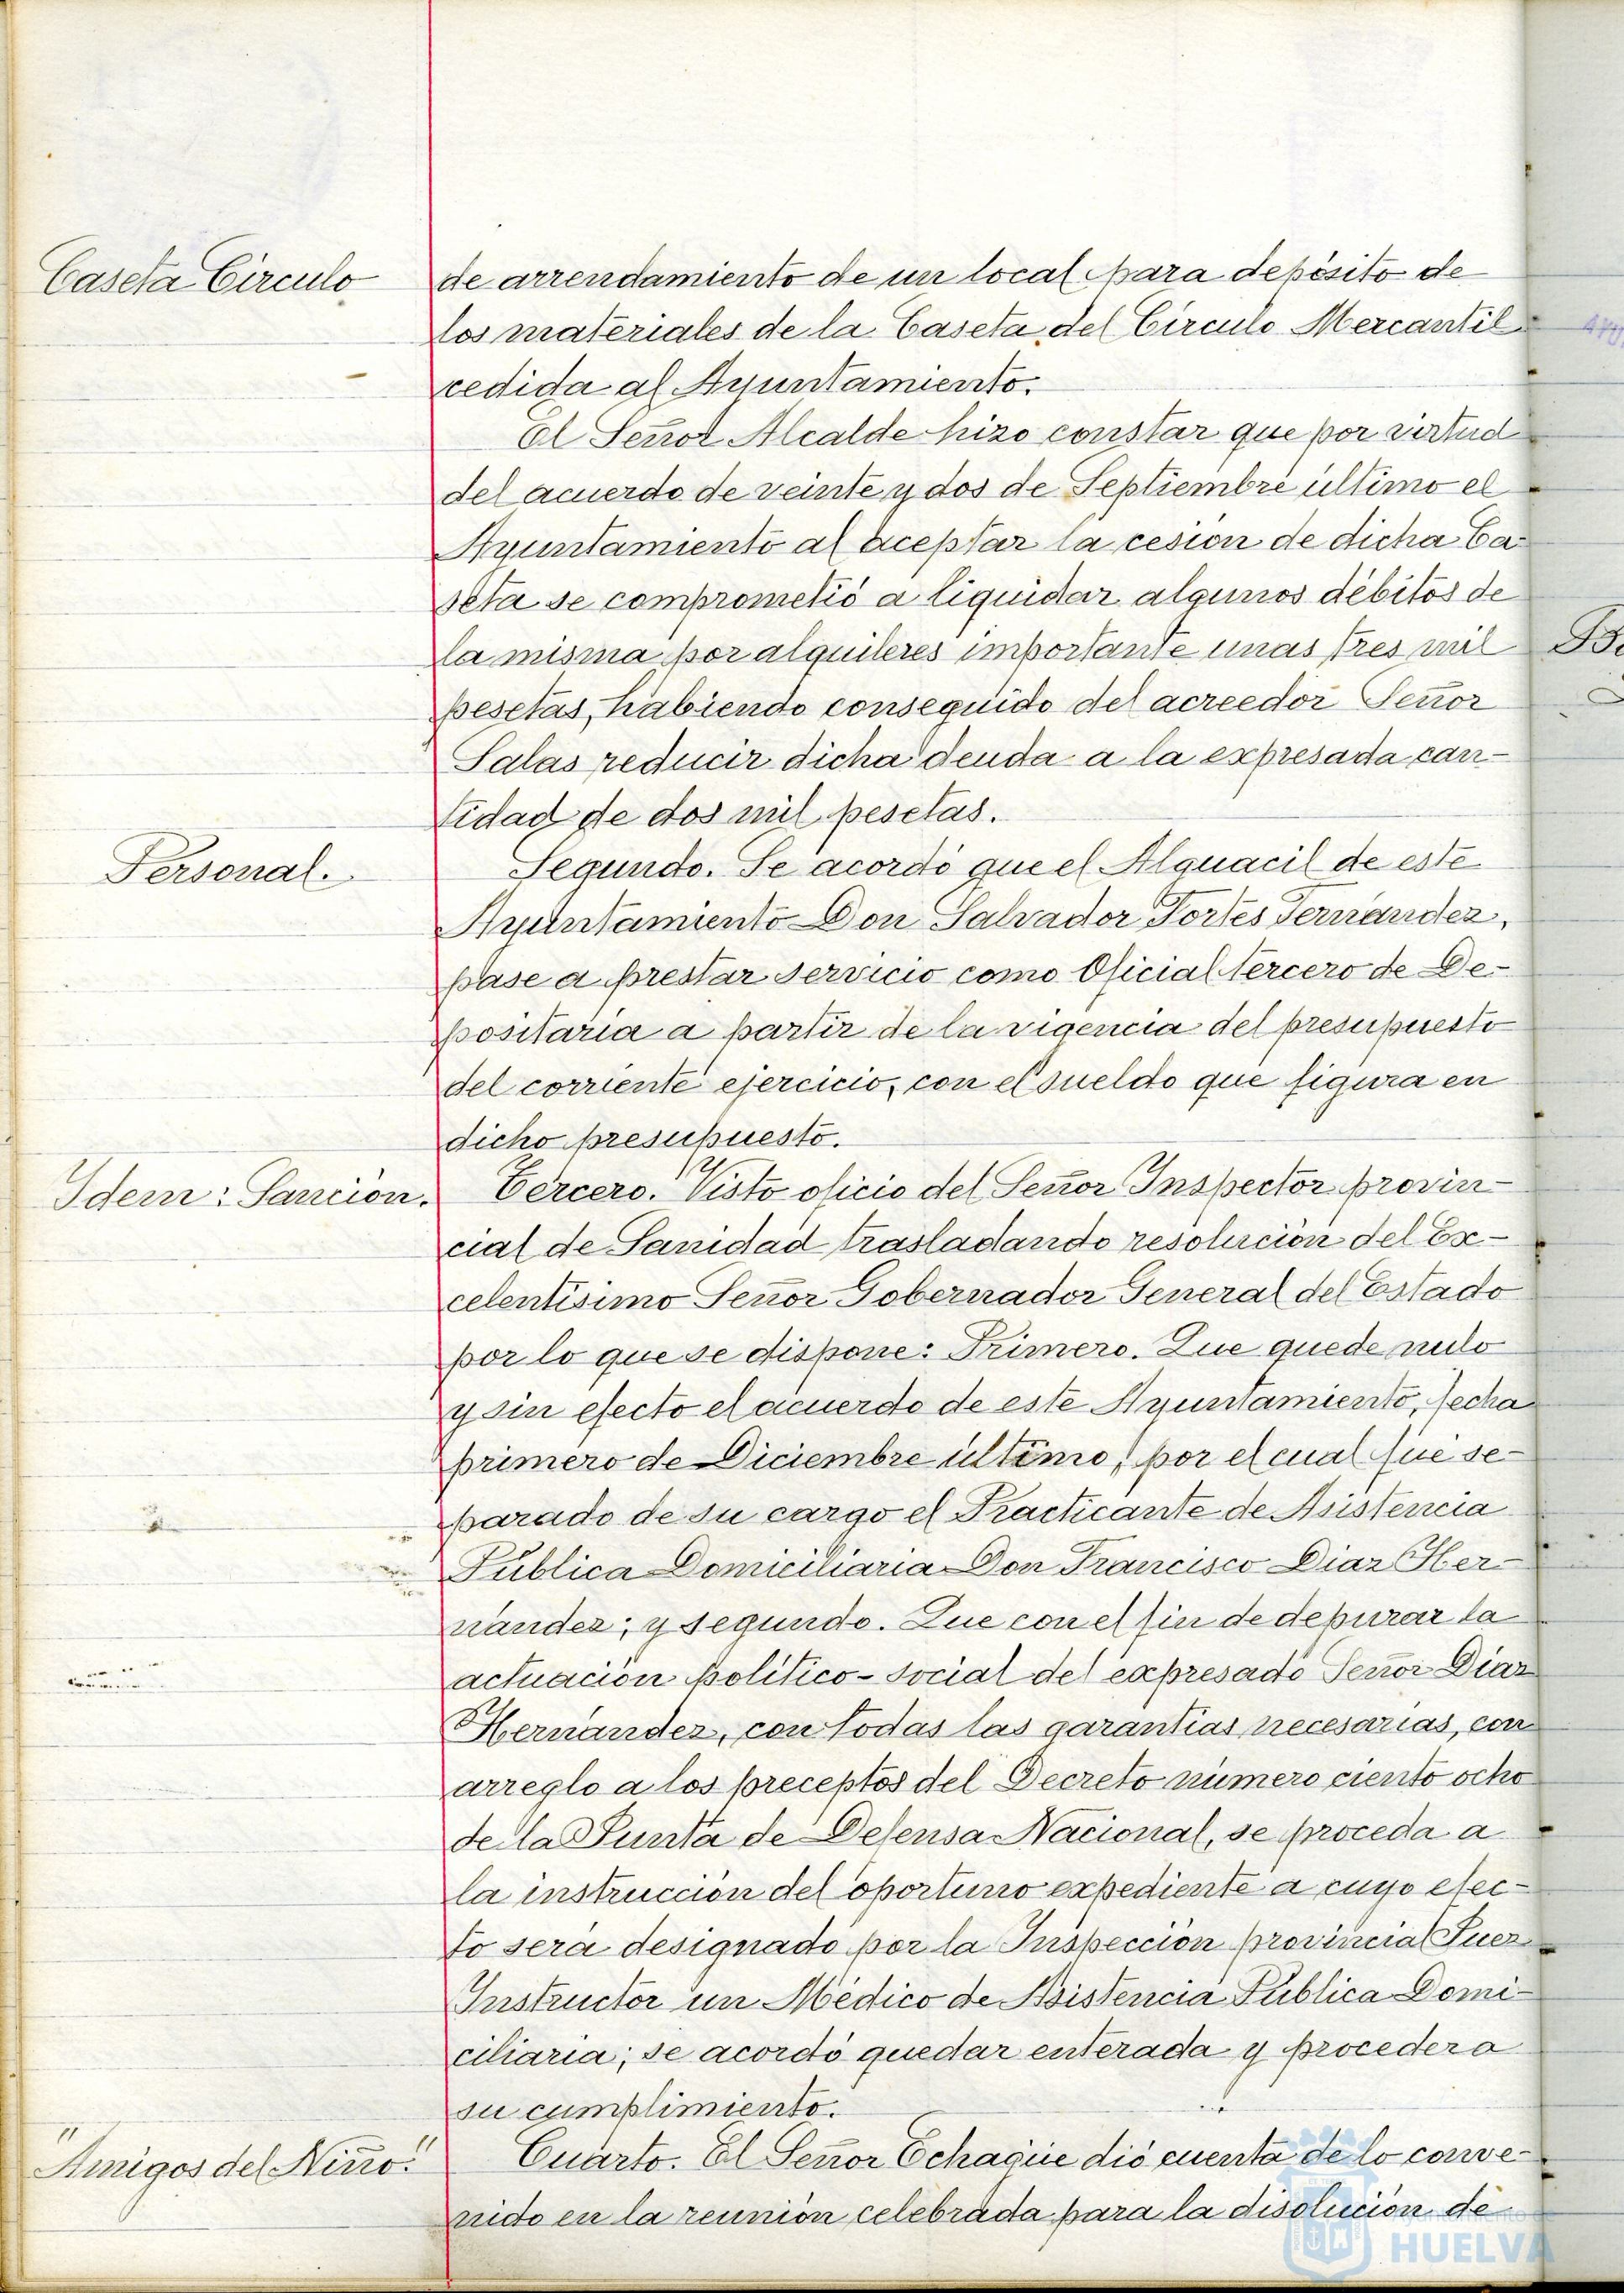 Caseta Círculo
de arrendamiento de un local para depósito de
los materiales de la Caseta del Círculo Mercantil
cedida al Ayuntamiento.
El Señor Alcalde hizo constar que por virtud
del acuerdo de veinte y dos de Septiembre último el
Ayuntamiento al aceptar la cesión de dicha Ca-
seta se comprometió a liquidar algunos débitos de
la misma por alquileres importante unas tres mil
pesetas, habiendo conseguido del acreedor Señor
Salas reducir dicha deuda a la expresada can-
tidad de dos mil pesetas.
Personal.
Segundo. Se acordó que el Alguacil de este
Ayuntamiento Don Salvador Fortes Fernández,
pase a prestar servicio como Oficial tercero de De-
positaria a partir de la vigencia del presupuesto
del corriente ejercicio, con el sueldo que figura en
dicho presupuesto.
Idem: Sanción.
Tercero. Visto oficio del Señor Inspector provin-
cial de Sanidad trasladando resolución del Ex-
celentísimo Señor Gobernador General del Estado
por lo que se dispone: Primero. Que quede nulo
y sin efecto el acuerdo de este Ayuntamiento, fecha
primero de Diciembre último, por el cual fué se-
parado de su cargo el Practicante de Asistencia
Pública Domiciliaria Don Francisco Díaz Her-
nández; y segundo. Que con el fin de depurar la
actuación político-social del expresado Señor Díaz
Hernández, con todas las garantías necesarias, con
arreglo a los preceptos del Decreto número ciento ocho
de la Junta de Defensa Nacional, se proceda a
la instrucción del oportuno expediente a cuyo efec-
to será designado por la Inspección provincial Juez
Instructor un Médico de Asistencia Pública Domi-
ciliaria; se acordó quedar enterada y proceder a
su cumplimiento.
"Amigos del Niño."
Cuarto. El Señor Echagüe dió cuenta de lo conve-
nido en la reunión celebrada para la disolución de
HUELVA